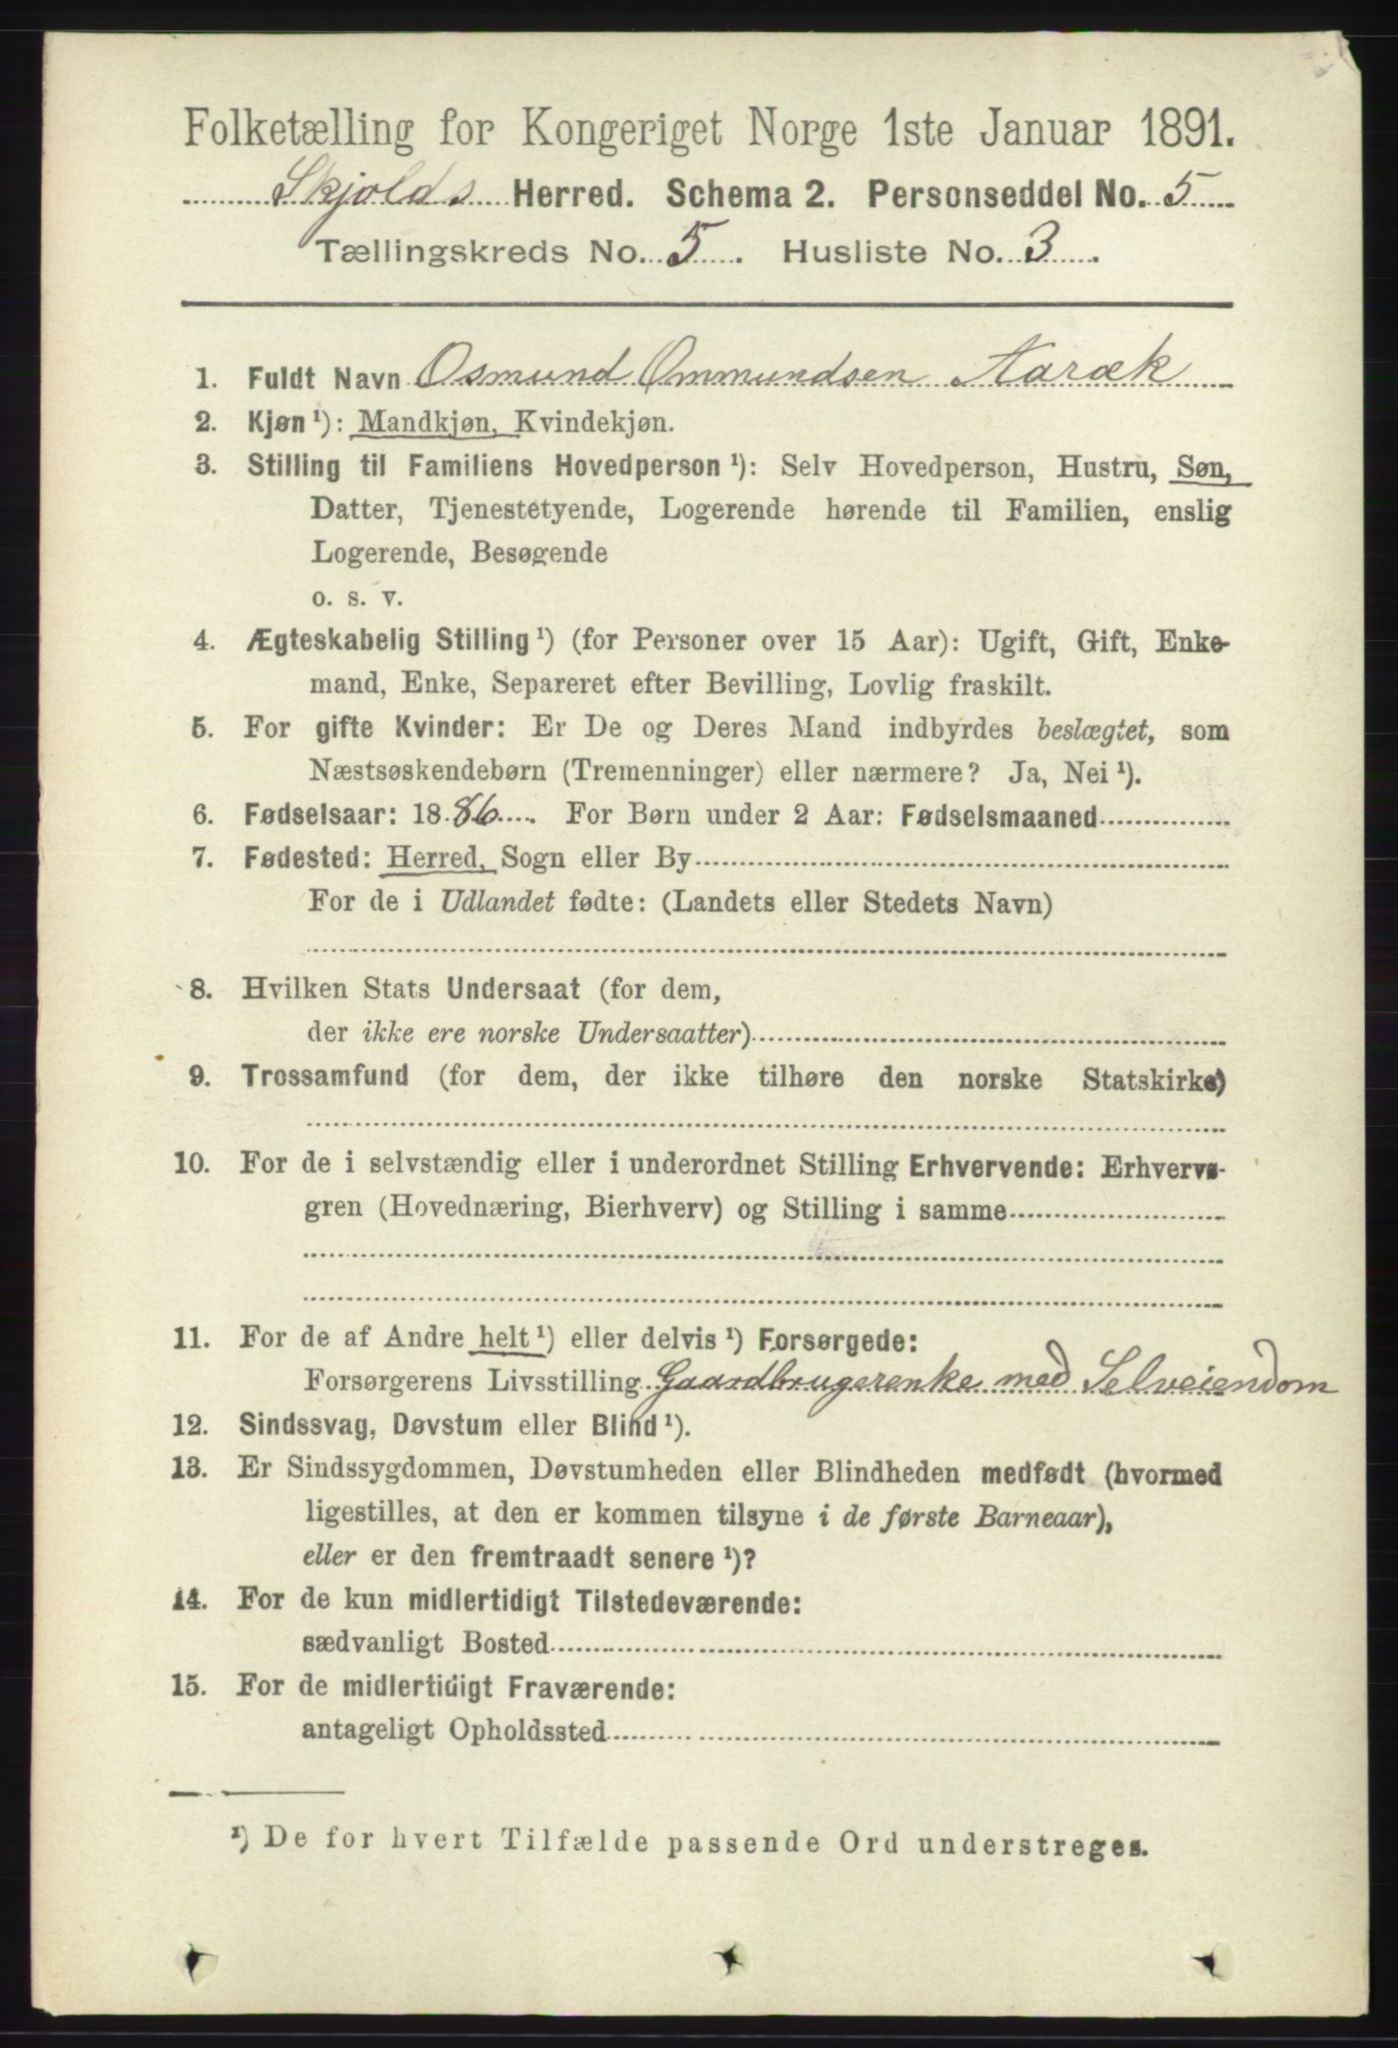 Folketælling for Kongeriget Norge 1ste Januar 1891.
Skjolds Herred. Schema 2. Personseddel No. 5
Tællingskreds No. 5. Husliste No. 3.
1. Fuldt Navn Osmund Ommundsen Aaræk
2. Kjøn ¹): Mandkjøn, Kvindekjøn.
3. Stilling til Familiens Hovedperson ¹): Selv Hovedperson, Hustru, Søn,
Datter, Tjenestetyende, Logerende hørende til Familien, enslig
Logerende, Besøgende
o. s. v.
4. Ægteskabelig Stilling ¹) (for Personer over 15 Aar): Ugift, Gift, Enke-
mand, Enke, Separeret efter Bevilling, Lovlig fraskilt.
5. For gifte Kvinder: Er De og Deres Mand indbyrdes beslægtet, som
Næstsøskendebørn (Tremenninger) eller nærmere? Ja, Nei ¹).
6. Fødselsaar: 1886. For Børn under 2 Aar: Fødselsmaaned
7. Fødested: Herred, Sogn eller By
For de i Udlandet fødte: (Landets eller Stedets Navn)
8. Hvilken Stats Undersaat (for dem,
der ikke ere norske Undersaatter)
9. Trossamfund (for dem, der ikke tilhøre den norske Statskirke)
10. For de i selvstændig eller i underordnet Stilling Erhvervende: Erhvervs-
gren (Hovednæring, Bierhverv) og Stilling i samme
11. For de af Andre helt ¹) eller delvis ¹) Forsørgede:
Forsørgerens Livsstilling Gaardbrugerenke med Selveiendom
12. Sindssvag, Døvstum eller Blind ¹).
13. Er Sindssygdommen, Døvstumheden eller Blindheden medfødt (hvormed
ligestilles, at den er kommen tilsyne i de første Barneaar),
eller er den fremtraadt senere ¹)?
14. For de kun midlertidigt Tilstedeværende:
sædvanligt Bosted
15. For de midlertidigt Fraværende:
antageligt Opholdssted
¹) De for hvert Tilfælde passende Ord understreges.